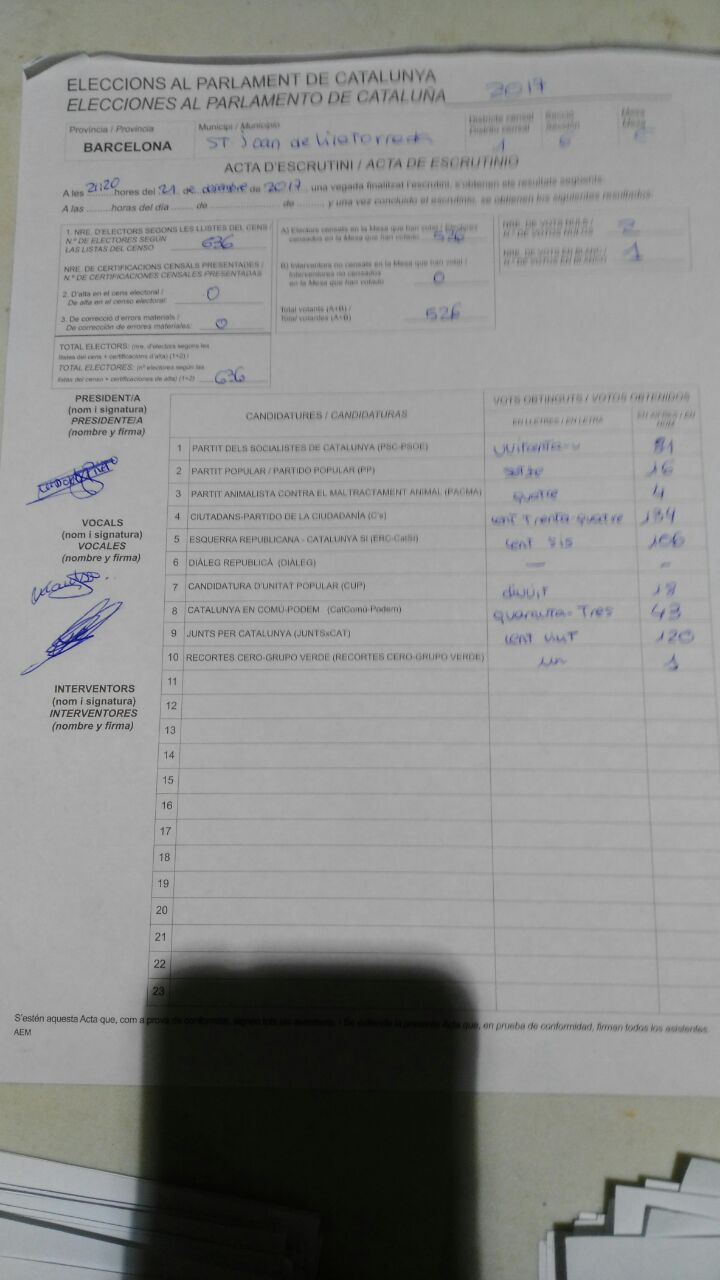 ELECCIONS AL PARLAMENT DE CATALUNYA 2017
ELECCIONES AL PARLAMENTO DE CATALUÑA
Província / Provincia
BARCELONA
Municipi / Municipio
ST Joan de Vilatorrada
Districte censal
Distrito censal
1
Secció
Sección
Mesa
Mesa
ACTA D'ESCRUTINI / ACTA DE ESCRUTINIO
A les 21:20 hores del 21 de desembre de 2017, una vegada finalitzat l'escrutini, s'obtenen els resultats següents:
A las ......... horas del día ....... de ....................... de ........., y una vez concluido el escrutinio, se obtienen los siguientes resultados:
1. NRE. D'ELECTORS SEGONS LES LLISTES DEL CENS /
N.º DE ELECTORES SEGÚN
LAS LISTAS DEL CENSO 636
NRE. DE CERTIFICACIONS CENSALS PRESENTADES /
N.º DE CERTIFICACIONES CENSALES PRESENTADAS
2. D'alta en el cens electoral /
De alta en el censo electoral: 0
3. De correcció d'errors materials /
De corrección de errores materiales: 0
TOTAL ELECTORS: (nre. d'electors segons les
llistes del cens + certificacions d'alta) (1+2) /
TOTAL ELECTORES: (nº electores según las
listas del censo + certificaciones de alta) (1+2) 636
A) Electors censats en la Mesa que han votat / Electores
censados en la Mesa que han votado 526
B) Interventors no censats en la Mesa que han votat /
Interventores no censados
en la Mesa que han votado 0
Total votants (A+B) /
Total votantes (A+B) 526
NRE. DE VOTS NULS /
N.º DE VOTOS NULOS 2
NRE. DE VOTS EN BLANC /
N.º DE VOTOS EN BLANCO 1
PRESIDENT/A
(nom i signatura)
PRESIDENTE/A
(nombre y firma)
VOCALS
(nom i signatura)
VOCALES
(nombre y firma)
INTERVENTORS
(nom i signatura)
INTERVENTORES
(nombre y firma)
CANDIDATURES / CANDIDATURAS
VOTS OBTINGUTS / VOTOS OBTENIDOS
EN LLETRES / EN LETRA
EN XIFRES / EN
1 PARTIT DELS SOCIALISTES DE CATALUNYA (PSC-PSOE) 81
2 PARTIT POPULAR / PARTIDO POPULAR (PP) setze 16
3 PARTIT ANIMALISTA CONTRA EL MALTRACTAMENT ANIMAL (PACMA) quatre 4
4 CIUTADANS-PARTIDO DE LA CIUDADANÍA (C's) cent trenta-quatre 134
5 ESQUERRA REPUBLICANA - CATALUNYA SÍ (ERC-CatSí) cent sis 106
6 DIÀLEG REPUBLICÀ (DIÀLEG) — -
7 CANDIDATURA D'UNITAT POPULAR (CUP) divuit 18
8 CATALUNYA EN COMÚ-PODEM (CatComú-Podem) quaranta-tres 43
9 JUNTS PER CATALUNYA (JUNTSxCAT) cent vint 120
10 RECORTES CERO-GRUPO VERDE (RECORTES CERO-GRUPO VERDE) un 1
11
12
13
14
15
16
17
18
19
20
21
22
23
S'estén aquesta Acta que, com a prova de conformitat, signen tots els assistents. / Se extiende la presente Acta que, en prueba de conformidad, firman todos los asistentes.
AEM